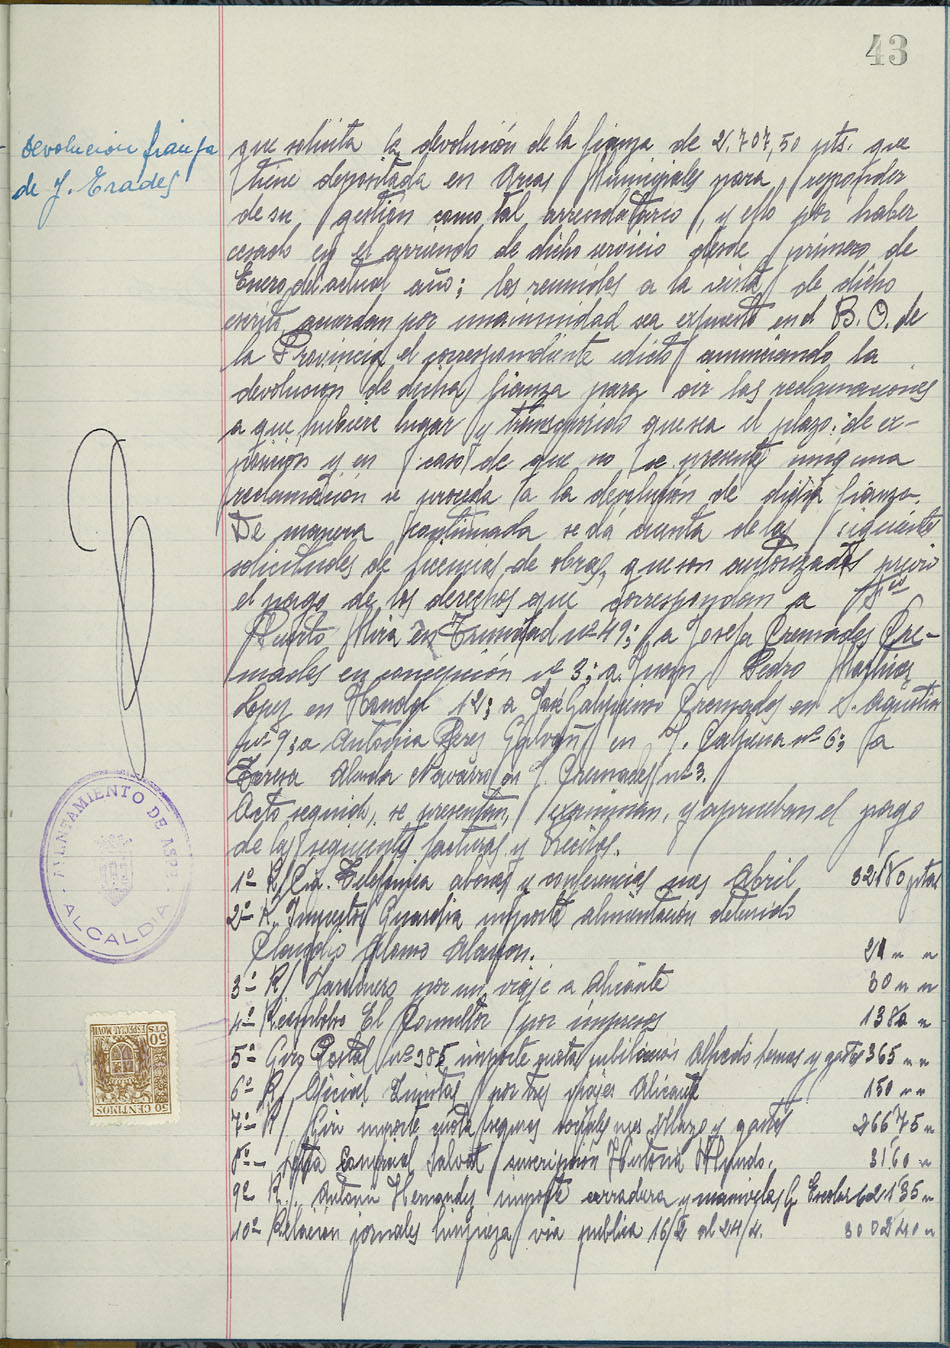 43
devolucion fianza
de J. Erades
que solicita la devolución de la fianza de 2,707,50 pts. que
tiene depositada en Arcas Municipales para responder
de su gestión como tal arrendatario, y ello por haber
cesado en el arriendo de dicho servicio desde primero de
Enero del actual año; los reunidos a la vista de dicho
escrito, acuerdan por unanimidad sea expuesto en el B.O. de
la Provincia el correspondiente edicto anunciando la
devolucion de dicha fianza para oir las reclamaciones
a que hubiere lugar y transcurrido que sea el plazo de ex-
posicion y en caso de que no se presente ninguna
reclamación se proceda a la devolución de dicha fianza.
De manera continuada se dá cuenta de las siguientes
solicitudes de licencias de obras, que son autorizadas previo
el pago de los derechos que correspondan a Fco
Puerto Mira en Trinidad nº 49; a Josefa Cremades Cre-
mades en concepción nº 3; a Juan Pedro Martinez
Lopez en 12; a José Cremades en S. Agustin
nº 9; a Antonia Peres Galvañ en nº 6; a
Teresa Navarro en J. Cremades nº 3.
Acto seguido, se presentan, examinan, y aprueban el pago
de las siguientes facturas y recibos.
1º R/ Cia. Telefonica abonos y conferencias mes Abril 321'80 ptas
2º R. Guardia importe alimentación detenido
Claudio Alonso 21 " "
3º R/ por un viaje a Alicante 30 " "
4º Reembolso El Consultor por impresos 138 "
5º Giro Postal nº 985 importe cuota Alfredo y gtos 365 " "
6º R/ Oficial Quintas por tres viajes Alicante 150 " "
7º R/ Giro importe cuota seguros sociales mes Marzo y gastos 266'75 "
8º Salvat suscripción Historia Mundo. 31'60 "
9º R/. Antonio Hernandez importe cerradura y manivelas G. Escolar 62'135 "
10º Relación jornales limpieza via publica 16/ al 24/4. 3002'40 "
AYUNTAMIENTO DE ASPE
ALCALDIA
ESPECIAL MOVIL
50 CTS
50 CENTIMOS